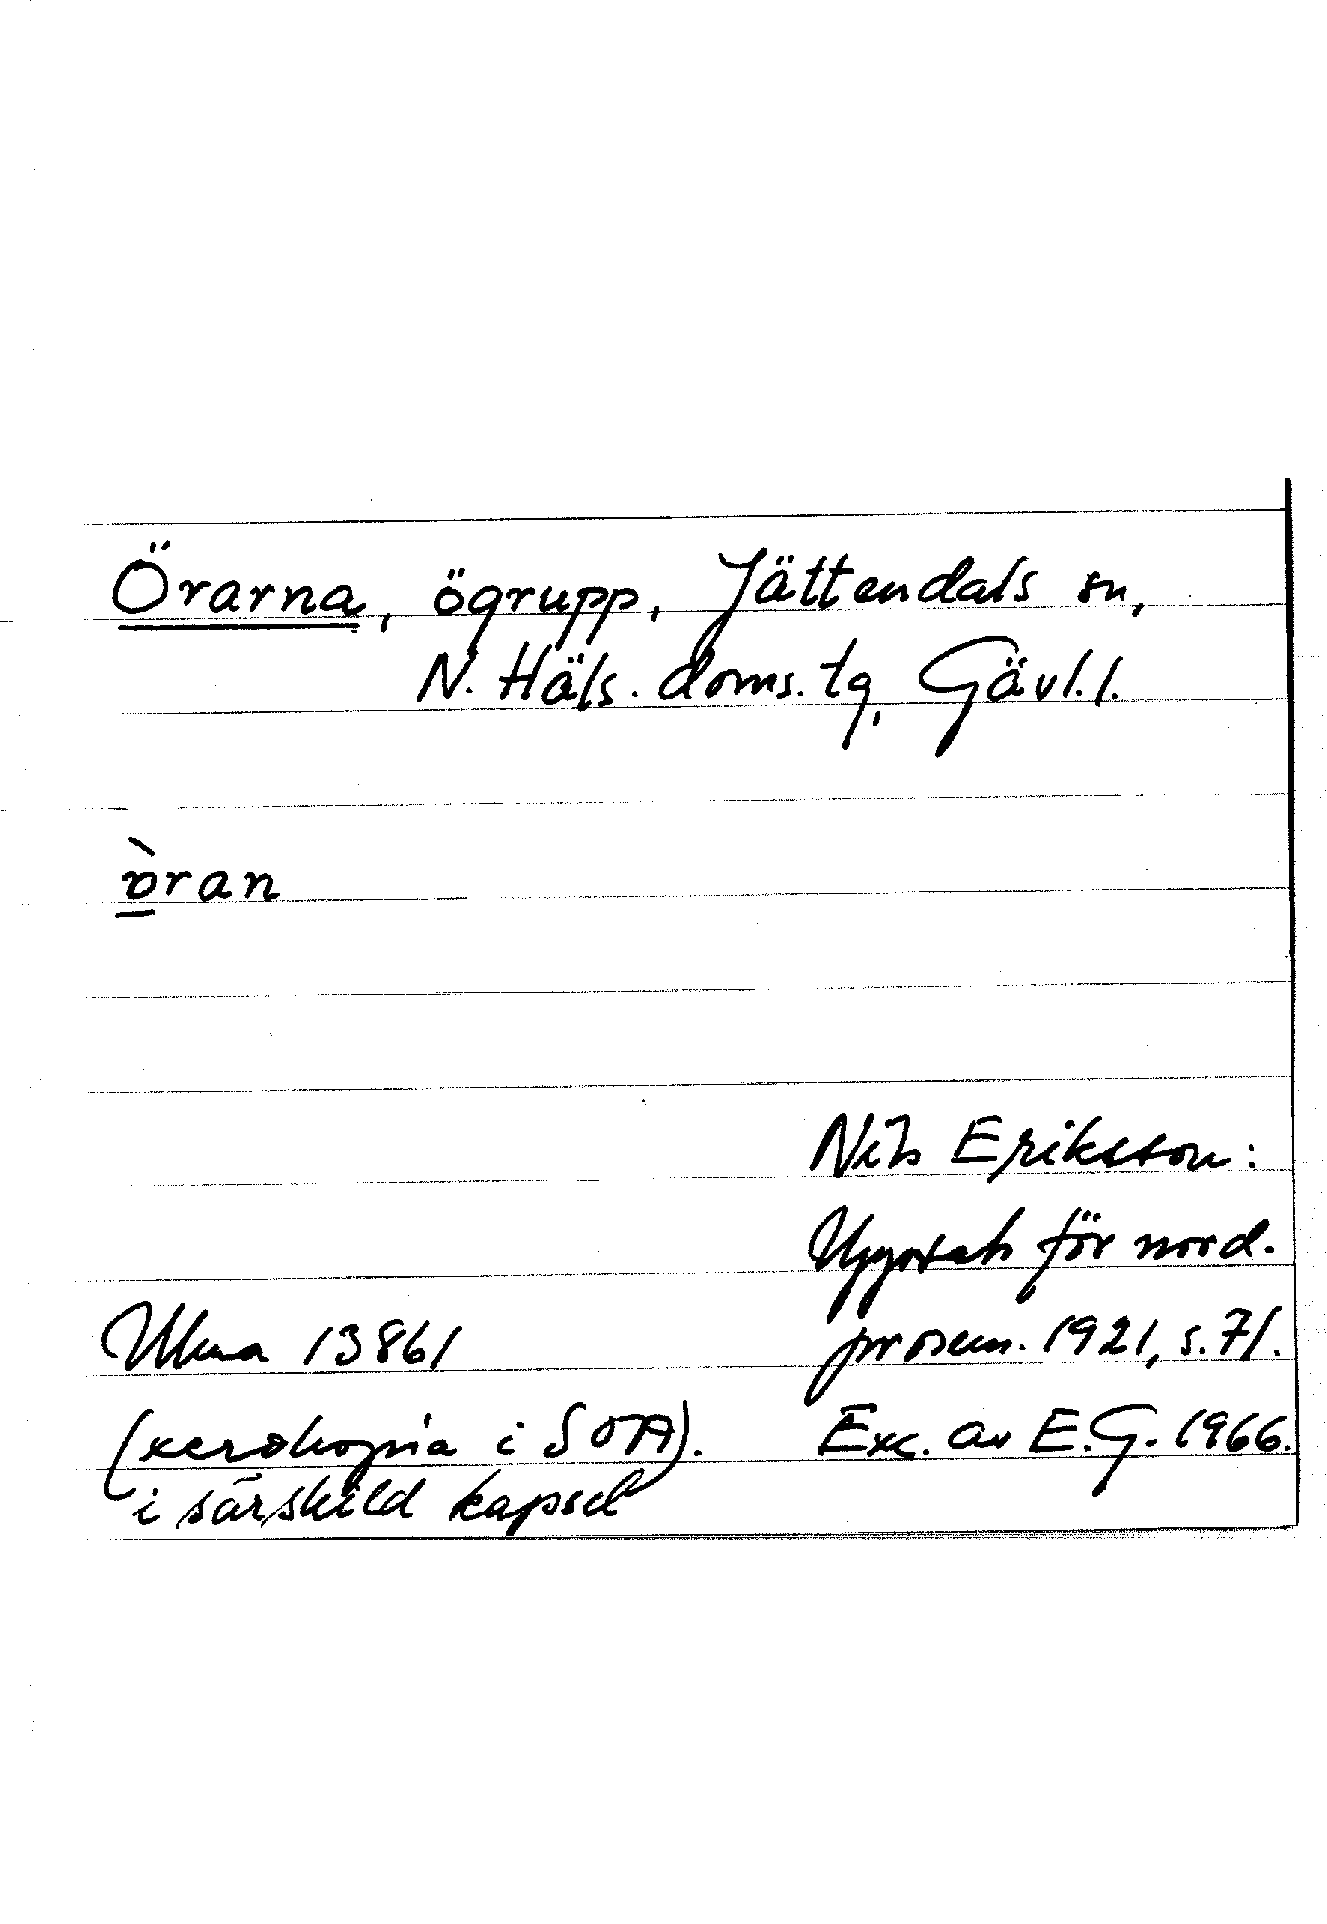 Örarna, ögrupp, Jättendals sn,
N. Häls. doms. tg, Gävl. l.
ran
Nils Eriksson:
Uppsats för nord.
prosem. 1921, s. 71.
Ulma 13861
(xerokopia i SOA).
Exc. av E. G. 1966.
i särskild kapsel